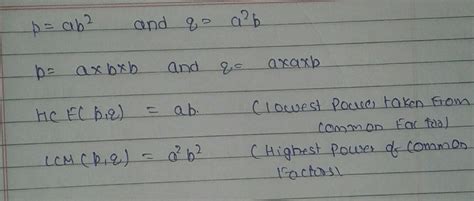 p = ab² and q = a²b
p = a×b×b and q = a×a×b
HCF(p,q) = ab. (lowest Power taken from common Factors)
LCM(p,q) = a²b² (Highest Power of common Factors)